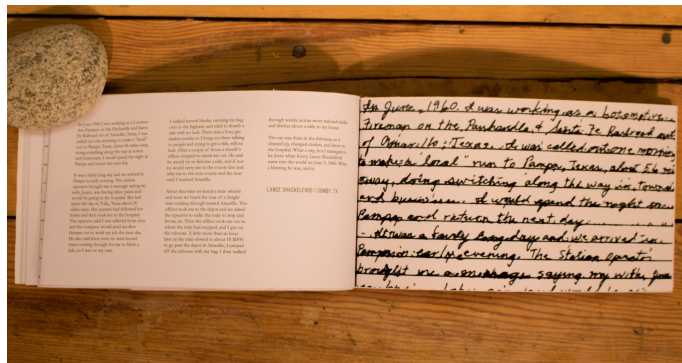 In June 1960 I was working as a Locomo-
tive Fireman on the Panhandle and Santa
Fe Railroad out of Amarillo, Texas. I was
called out one morning to make a "local"
run to Pampa, Texas about 56 miles away,
doing switching along the way in towns
and businesses. I would spend the night in
Pampa and return the next day.
It was a fairly long day and we arrived in
Pampa in early evening. The station
operator brought me a message saying my
wife, was having labor pains and
would be going to the hospital. She had
spent the day in Tulia, Texas about 50
miles away. Her parents had followed her
home and then took her to the hospital.
The operator said I was relieved from duty
and the company would send another
fireman out to work my job the next day.
He also said there were no more
trains coming through for me to hitch a
ride, so I was on my own.
I walked several blocks, carrying my bag,
over to the highway and tried to thumb a
ride with no luck. There was a busy gas
station nearby so I hung out there talking
to people and trying to get a ride, still no
luck. After a couple of hours a sheriff's
officer stopped to check me out. He said
he would try to find me a ride, and if not
he would carry me to the county line and
until I reached Amarillo.
About that time we heard a train whistle
and soon we heard the roar of a freight
train coming through toward Amarillo. The
officer took me to the depot and we asked the
operator to radio the train to stop and
let me on. Then the officer took me out to
where the train had stopped, and I got on
the caboose. A little more than an hour
later as the train slowed to about 10 MPH
to go past the depot in Amarillo, I jumped
off the caboose with my bag. I then walked
through weeds, across more railroad tracks
and ditches about a mile to my house.
The car was there in the driveway, so I
cleaned up, changed clothes, and drove to the
hospital. What a trip, but I managed to
be there when Lance Shackelford
came into the world on June 9, 1960. Why
a blessing he was, and is.
LANCE SHACKELFORD / CUMBY, TX
In June, 1960. I was working as a Locomotive
Fireman on the Panhandle & Santa Fe Railroad out
of Amarillo, Texas. I was called out one morning
to make a "local" run to Pampa, Texas, about 56 miles
away, doing switching along the way in towns
and businesses. I would spend the night in
Pampa and return the next day.
It was a fairly long day and we arrived in
Pampa in early evening. The Station Operator
brought me a message saying my wife,